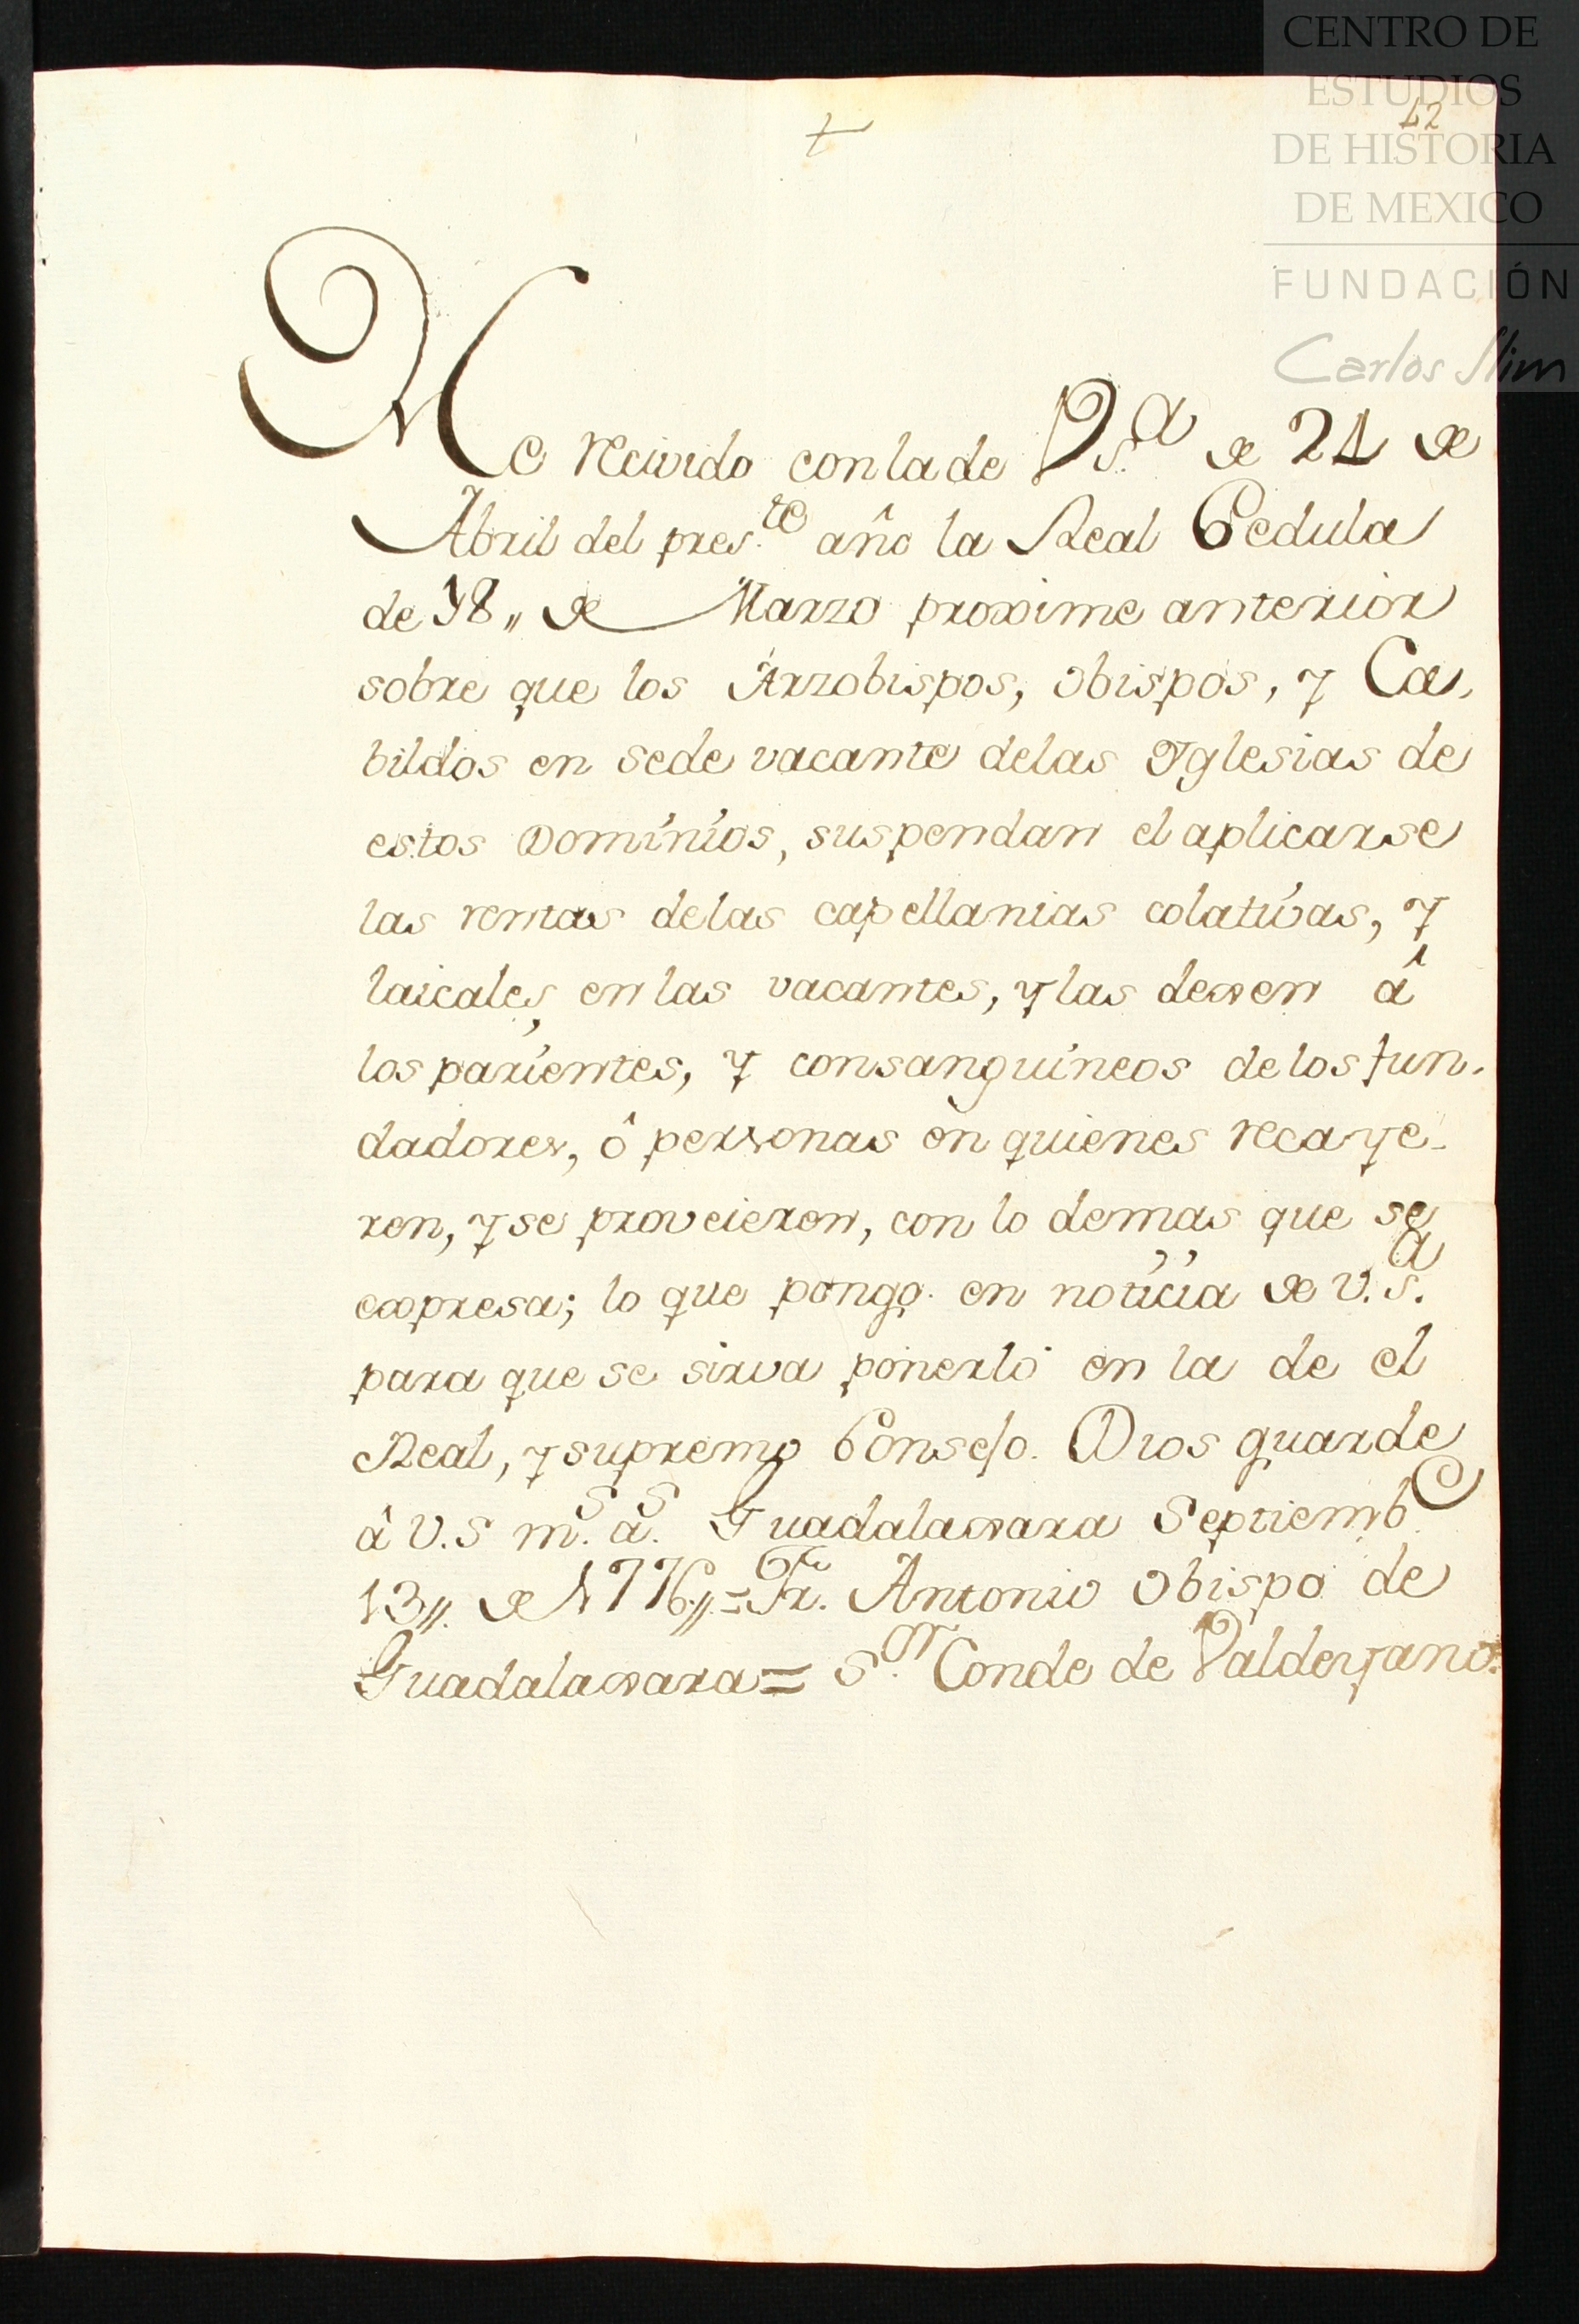 CENTRO DE
ESTUDIOS
DE HISTORIA
DE MEXICO
FUNDACIÓN
Carlos Slim
42
He recivido con la de V.S.ª de 21 de
Abril del pres.te año la Real Cedula
de 18,, de Marzo proxime anterior
sobre que los Arzobispos, obispos, y Ca,
bildos en sede vacante delas Yglesias de
estos Dominios, suspendan el aplicarse
las rentas delas capellanias colativas, y
laicales en las vacantes, y las dexen â
los parientes, y consanguineos de los fun,
dadores, ô personas en quienes recaye-
ren, y se proveieren, con lo demas que se
expresa; lo que pongo en noticia de V.S.ª
para que se sirva ponerlo en la de el
Real, y supremo Consejo. Dios guarde
â V.S m.s a.s Guadalaxara Septiemb.e
13,, de 1776,,= Fr. Antonio Obispo de
Guadalaxara= S.or Conde de Valdeyano.